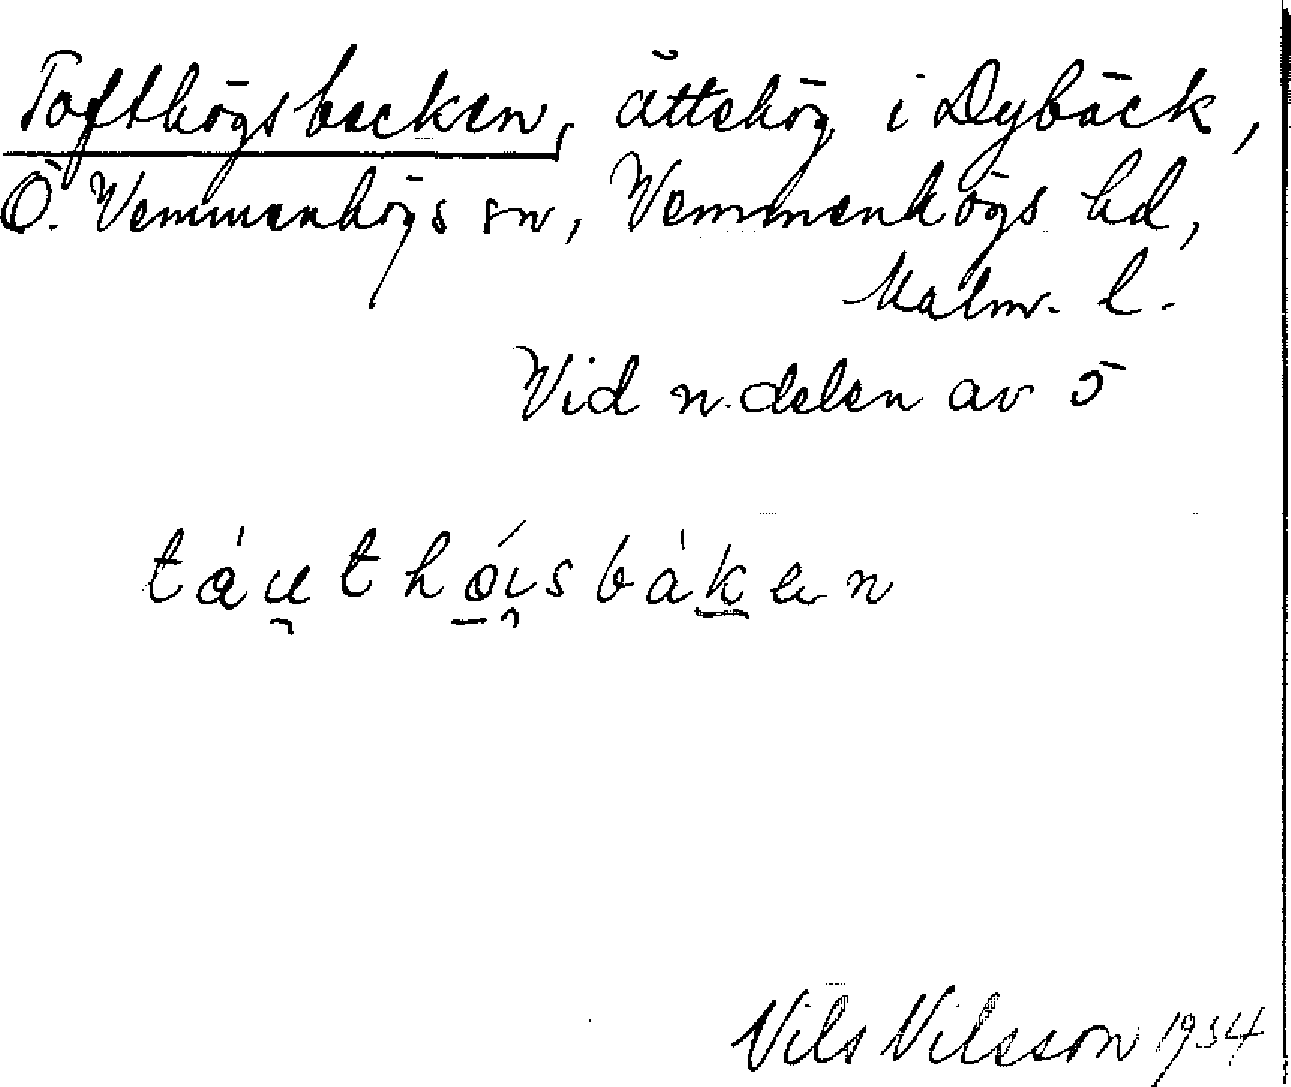 Tofthögsbacken, ättehög i Dybäck,
Ö. Vemmenhögs sn, Vemmenhögs hd,
Malm. l.
Vid n. delen av 5
Nils Nilsson 1934